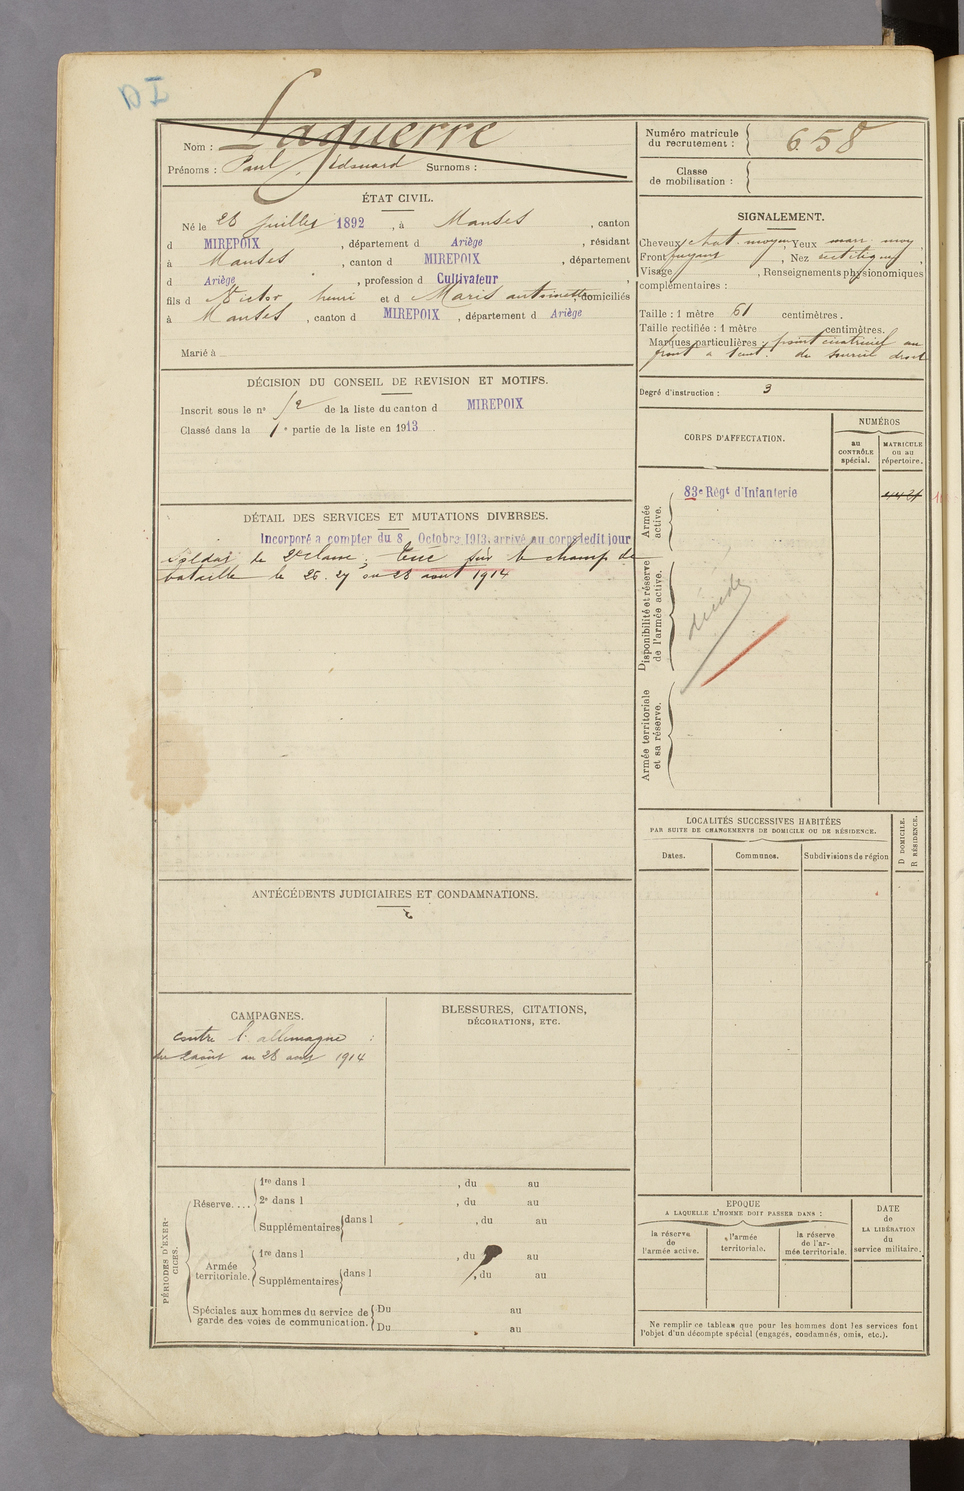 DI
Nom : Laguerre
Prénoms : Paul, Édouard Surnoms :
ÉTAT CIVIL.
Né le 28 juillet 1892, à Manses, canton
d MIREPOIX, département d Ariège, résidant
à Manses, canton d MIREPOIX, département
d Ariège, profession d Cultivateur,
fils d Victor henri et d Marie antoinette, domiciliés
à Manses, canton d MIREPOIX, département d Ariège
Marié à
DÉCISION DU CONSEIL DE REVISION ET MOTIFS.
Inscrit sous le n° 52 de la liste du canton d MIREPOIX
Classé dans la 1e partie de la liste en 1913
DÉTAIL DES SERVICES ET MUTATIONS DIVERSES.
Incorporé à compter du 8 Octobre 1913, arrivé au corps ledit jour
soldat de 2e classe. Tué sur le champ de
bataille le 26. 27 ou 28 aout 1914
ANTÉCÉDENTS JUDICIAIRES ET CONDAMNATIONS.
CAMPAGNES.
contre l'allemagne :
du 2 août au 28 aout 1914
BLESSURES, CITATIONS,
DÉCORATIONS, ETC.
PÉRIODES D'EXER-
CICES.
Réserve....
1re dans l , du au
2e dans l , du au
Supplémentaires dans l , du au
Armée
territoriale.
1re dans l , du au
Supplémentaires dans l , du au
Spéciales aux hommes du service de
garde des voies de communication.
Du au
Du au
Numéro matricule
du recrutement : 658
Classe
de mobilisation :
SIGNALEMENT.
Cheveux chat. moyen, Yeux marr. moy,
Front fuyant, Nez rectiligne,
Visage , Renseignements physionomiques
complémentaires :
Taille : 1 mètre 61 centimètres.
Taille rectifiée : 1 mètre centimètres.
Marques particulières : point cicatriciel au
front à 1 cent. du sourcil droit
Degré d'instruction : 3
CORPS D'AFFECTATION.
NUMÉROS
au
CONTRÔLE
spécial.
MATRICULE
ou au
répertoire.
Armée
active.
83e Régt d'Infanterie
Disponibilité et réserve
de l'armée active.
décédé
Armée territoriale
et sa réserve.
LOCALITÉS SUCCESSIVES HABITÉES
PAR SUITE DE CHANGEMENTS DE DOMICILE OU DE RÉSIDENCE.
Dates.
Communes.
Subdivisions de région
D DOMICILE.
R RÉSIDENCE.
EPOQUE
A LAQUELLE L'HOMME DOIT PASSER DANS :
la réserve
de
l'armée active.
l'armée
territoriale.
la réserve
de l'ar-
mée territoriale.
DATE
de
LA LIBÉRATION
du
service militaire.
Ne remplir ce tableau que pour les hommes dont les services font
l'objet d'un décompte spécial (engagés, condamnés, omis, etc.).